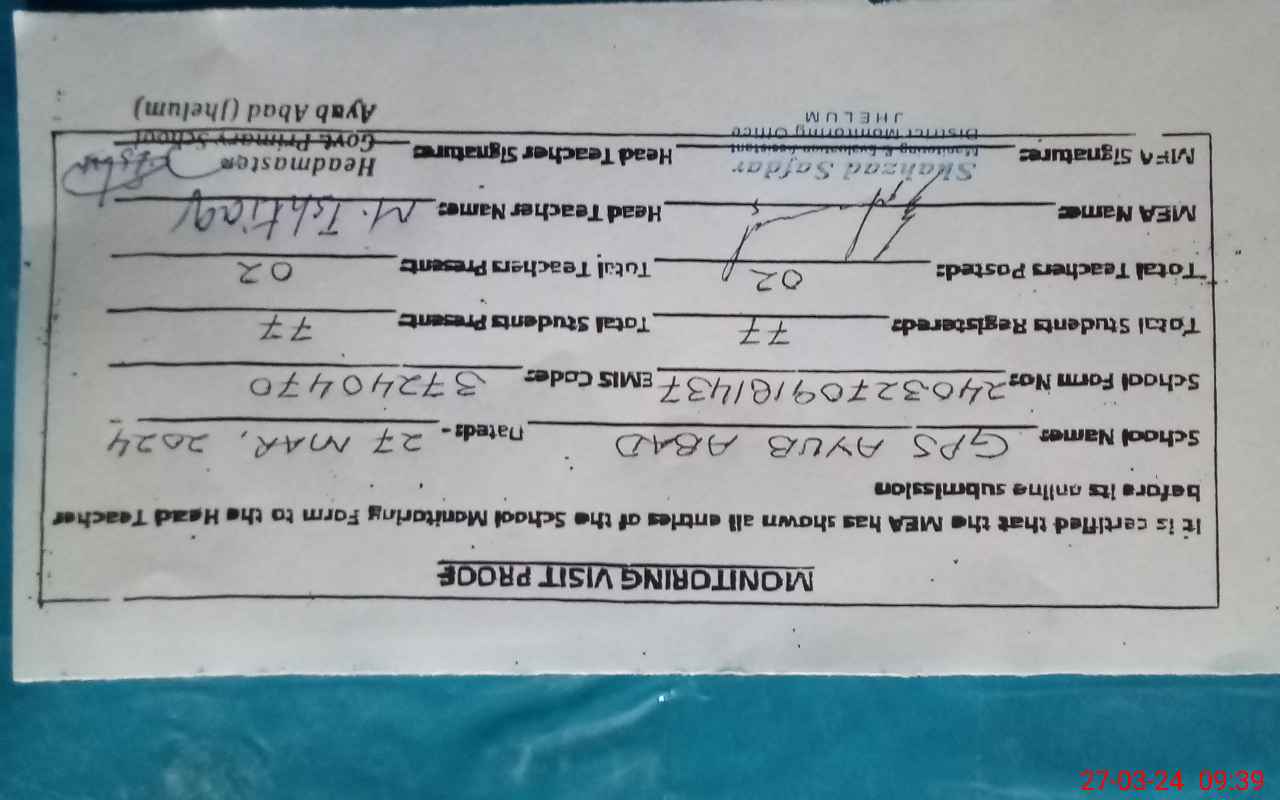 MONITORING VISIT PROOF
It is certified that the MEA has shown all entries of the School Monitoring Form to the Head Teacher
before its online submission
School Name: GPS AYUB ABAD Dated:- 27 MAR, 2024
School Form No: 24032709181437 EMIS Code: 37240470
Total Students Registered: 77 Total Students Present: 77
Total Teachers Posted: 02 Total Teachers Present: 02
MEA Name: Head Teacher Name: M. Ishtiaq
MEA Signature: Head Teacher Signature:
Shahzad Safdar
Monitoring & Evaluation Assistant
District Monitoring Office
JHELUM
Headmaster
Govt. Primary School
Ayub Abad (Jhelum)
27-03-24 09:39